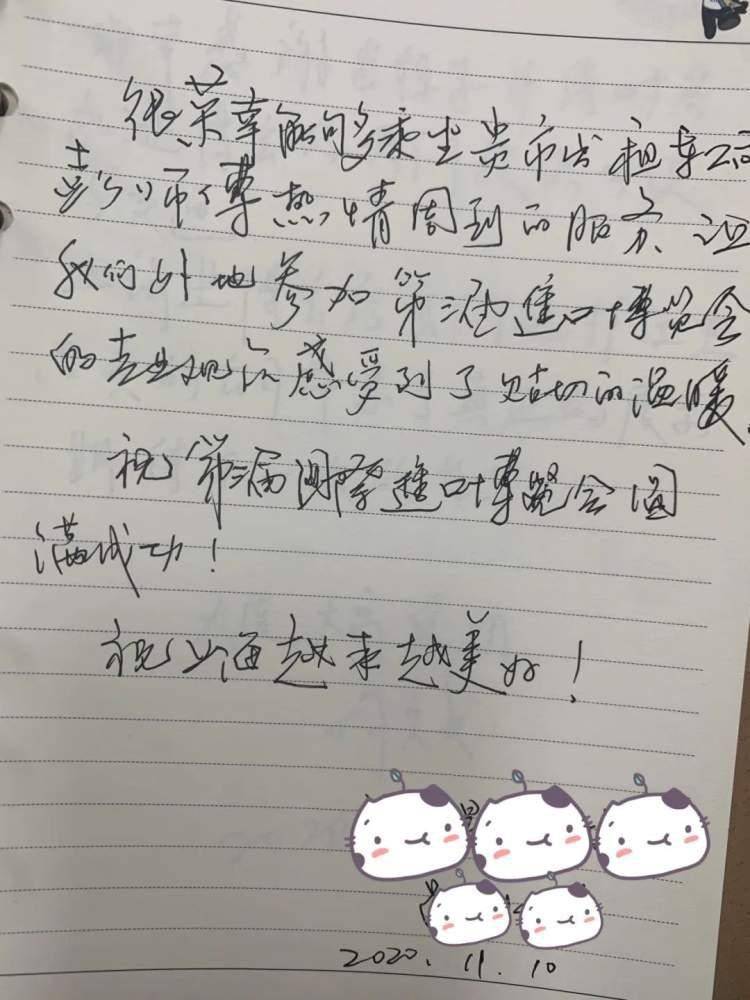 很荣幸能够乘坐贵市出租车
师傅热情周到的服务，让
我们外地参加第三届进口博览会
的感受到了贴切的温暖。
祝第三届国际进口博览会圆
满成功！
祝上海越来越美好！
2020.11.10